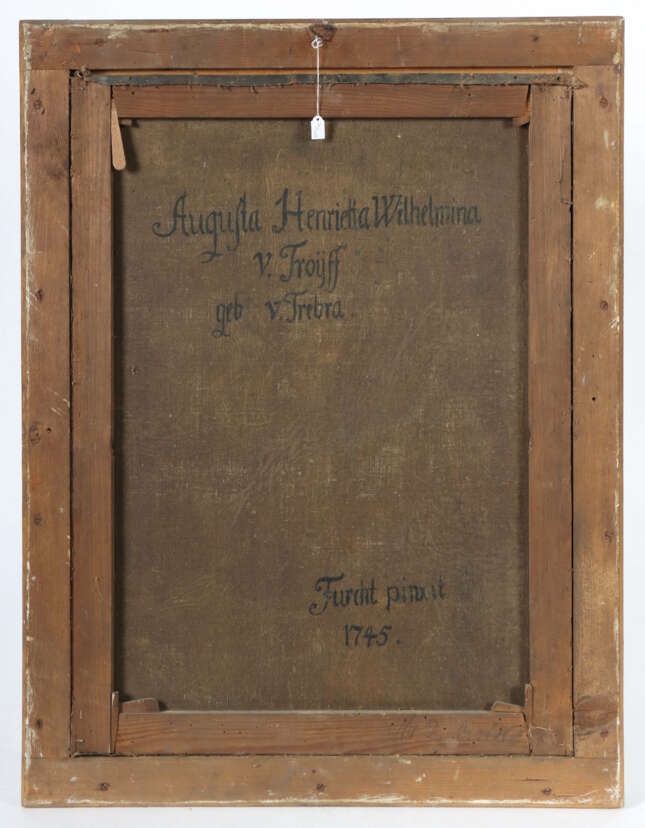 Augusta Henrietta Wilhelmina
v. Troÿff
geb v. Trebra.
Furcht pinxit
1745.